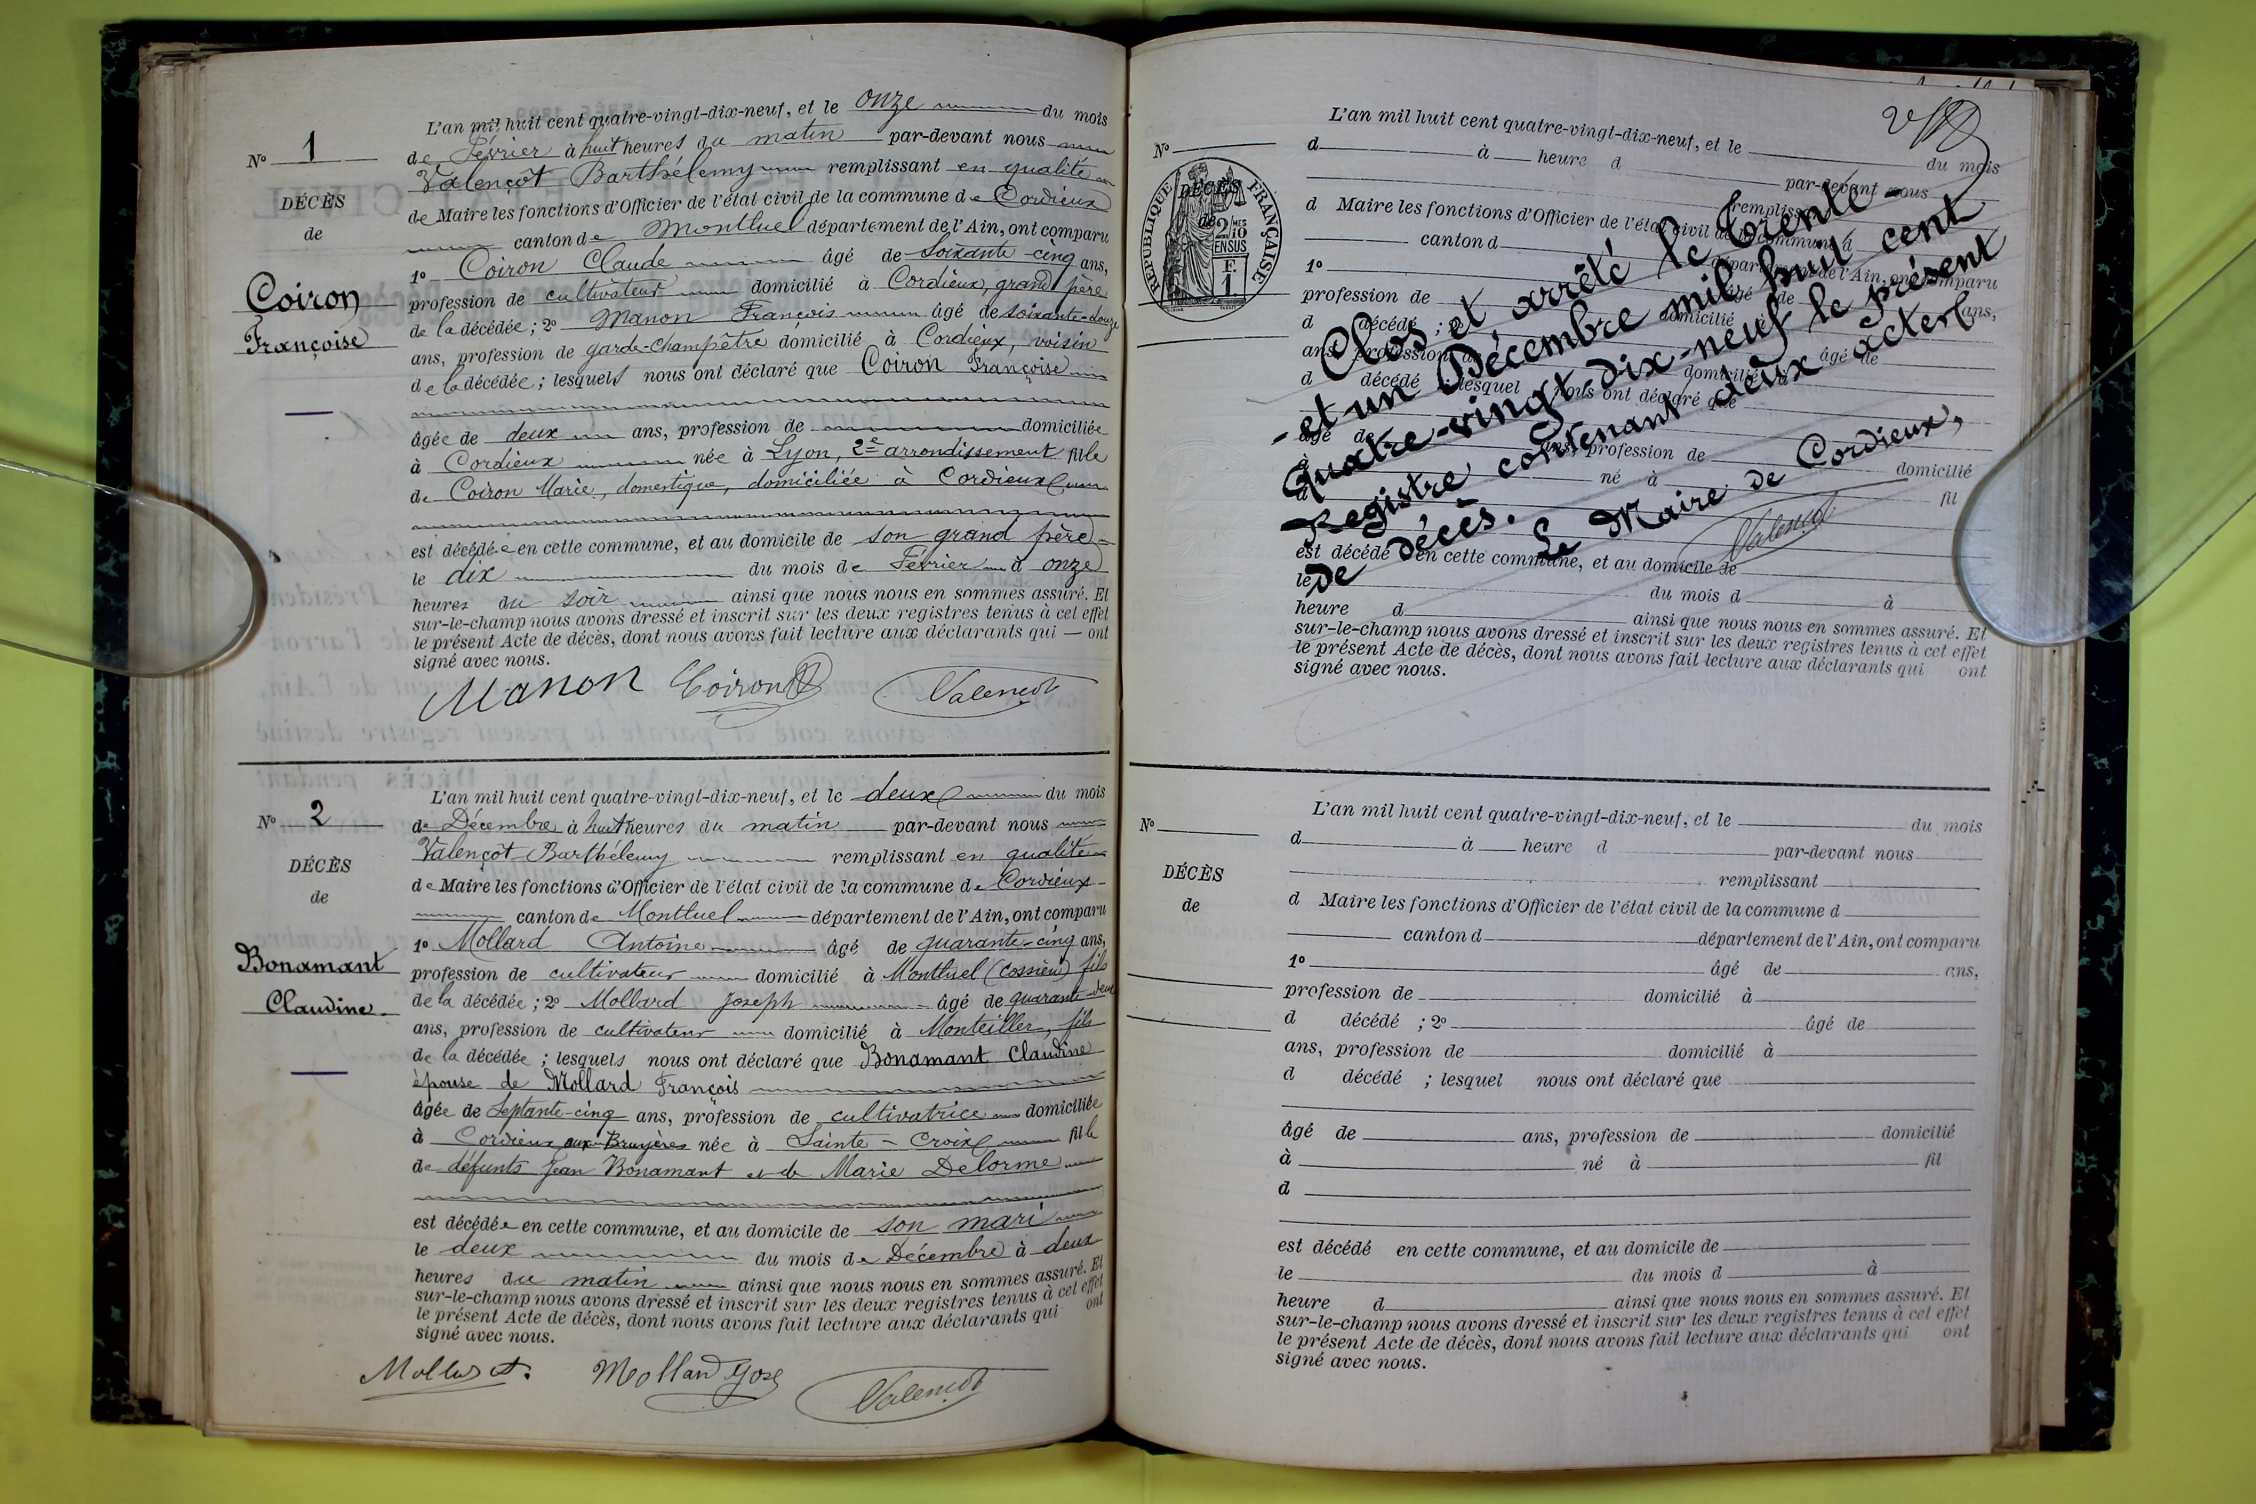 N° 1
DÉCÈS
de
Coiron
Françoise
L'an mil huit cent quatre-vingt-dix-neuf, et le onze du mois
de Février à huit heures du matin par-devant nous
Valençot Barthélemy remplissant en qualité
de Maire les fonctions d'Officier de l'état civil de la commune de Cordieux
canton de Montluel département de l'Ain, ont comparu
1° Coiron Claude âgé de soixante-cinq ans,
profession de cultivateur domicilié à Cordieux, grand père
de la décédée ; 2° Manon François âgé de soixante-douze
ans, profession de garde-champêtre domicilié à Cordieux, voisin
de la décédée ; lesquels nous ont déclaré que Coiron Françoise
âgée de deux ans, profession de domiciliée
à Cordieux née à Lyon, 2e arrondissement fille
de Coiron Marie, domestique, domiciliée à Cordieux
est décédée en cette commune, et au domicile de son grand père
le dix du mois de Février à onze
heures du soir ainsi que nous nous en sommes assuré. Et
sur-le-champ nous avons dressé et inscrit sur les deux registres tenus à cet effet
le présent Acte de décès, dont nous avons fait lecture aux déclarants qui — ont
signé avec nous.
Manon Coiron Valençot
N° 2
DÉCÈS
de
Bonamant
Claudine
L'an mil huit cent quatre-vingt-dix-neuf, et le deux du mois
de Décembre à huit heures du matin par-devant nous
Valençot Barthélemy remplissant en qualité
de Maire les fonctions d'Officier de l'état civil de la commune de Cordieux
canton de Montluel département de l'Ain, ont comparu
1° Mollard Antoine âgé de quarante-cinq ans,
profession de cultivateur domicilié à Montluel (Cossieu) fils
de la décédée ; 2° Mollard Joseph âgé de quarante-deux
ans, profession de cultivateur domicilié à Monteiller, fils
de la décédée ; lesquels nous ont déclaré que Bonamant Claudine
épouse de Mollard François
âgée de Septante-cinq ans, profession de cultivatrice domiciliée
à Cordieux aux Bruyères née à Sainte-Croix fille
de défunts Jean Bonamant et de Marie Delorme
est décédée en cette commune, et au domicile de son mari
le deux du mois de Décembre à deux
heures du matin ainsi que nous nous en sommes assuré. Et
sur-le-champ nous avons dressé et inscrit sur les deux registres tenus à cet effet
le présent Acte de décès, dont nous avons fait lecture aux déclarants qui ont
signé avec nous.
Mollard Valençot
N°
DÉCÈS
de
RÉPUBLIQUE FRANÇAISE
2/10
EN SUS
L'an mil huit cent quatre-vingt-dix-neuf, et le du mois
d à heure d par-devant nous
remplissant
d Maire les fonctions d'Officier de l'état civil de la commune d
canton d département de l'Ain, ont comparu
1° âgé de ans,
profession de domicilié à
d décédé ; 2° âgé de
ans, profession de domicilié à
d décédé ; lesquel nous ont déclaré que
âgé de ans, profession de domicilié
à né à fil
d
est décédé en cette commune, et au domicile de
le du mois d à
heure d ainsi que nous nous en sommes assuré. Et
sur-le-champ nous avons dressé et inscrit sur les deux registres tenus à cet effet
le présent Acte de décès, dont nous avons fait lecture aux déclarants qui ont
signé avec nous.
Clos et arrêté le trente-
-et un Décembre mil huit cent
quatre-vingt-dix-neuf le présent
Registre contenant deux actes
de décès.
Le Maire de Cordieux,
Valençot
N°
DÉCÈS
de
L'an mil huit cent quatre-vingt-dix-neuf, et le du mois
d à heure d par-devant nous
remplissant
d Maire les fonctions d'Officier de l'état civil de la commune d
canton d département de l'Ain, ont comparu
1° âgé de ans,
profession de domicilié à
d décédé ; 2° âgé de
ans, profession de domicilié à
d décédé ; lesquel nous ont déclaré que
âgé de ans, profession de domicilié
à né à fil
d
est décédé en cette commune, et au domicile de
le du mois d à
heure d ainsi que nous nous en sommes assuré. Et
sur-le-champ nous avons dressé et inscrit sur les deux registres tenus à cet effet
le présent Acte de décès, dont nous avons fait lecture aux déclarants qui ont
signé avec nous.